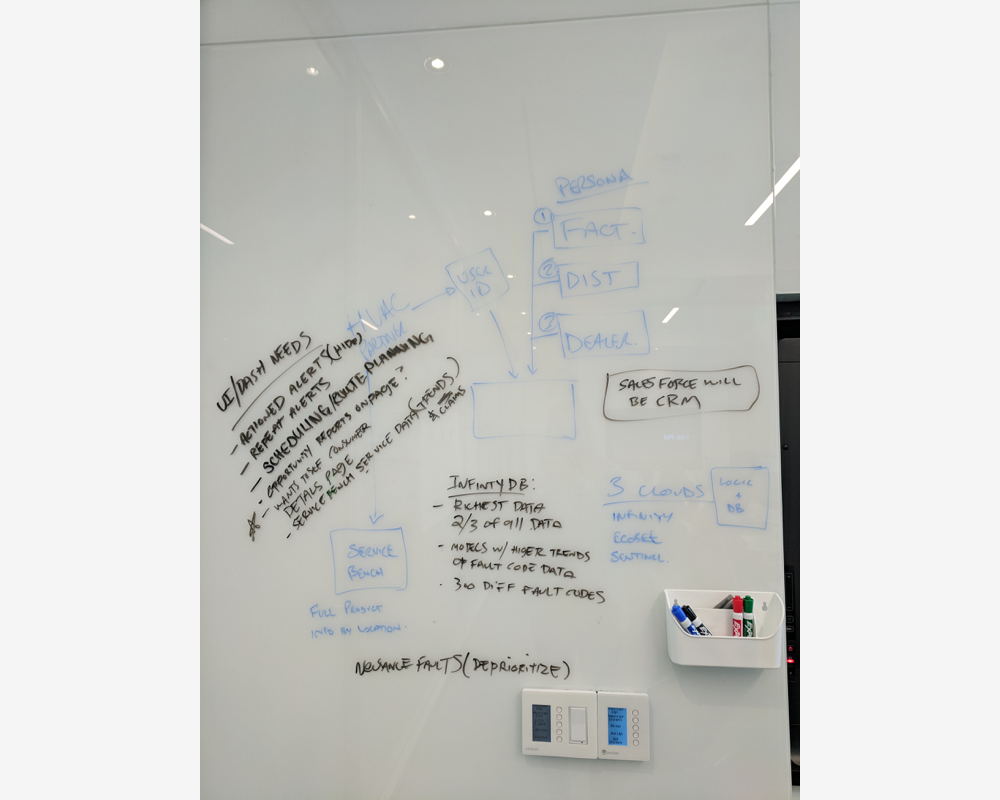 PERSONA
① FACT.
② DIST
③ DEALER.
USER
ID
HVAC
PARTNER
UI/DASH NEEDS
- ACTIONED ALERTS (HIDE)
- REPEAT ALERTS
- SCHEDULING/ROUTE PLANNING
- OPPORTUNITY REPORTS ON PAGE?
- WANTS TO SEE CONSUMER
DETAILS PAGE
- SERVICE BENCH SERVICE DATA (TRENDS)
& CLAIMS
SALES FORCE WILL
BE CRM
INFINTY DB:
- RICHEST DATA
2/3 of all DATA
- MODELS W/ HIGER TRENDS
OF FAULT CODE DATA
- 300 DIFF FAULT CODES
3 CLOUDS
INFINITY
ECOBEE
SENTINEL.
LOGIC
+
DB
SERVICE
BENCH
FULL PRODUCT
INFO BY LOCATION.
NUSANCE FAULTS (DEPRIORITIZE)
EXPO
EXPO